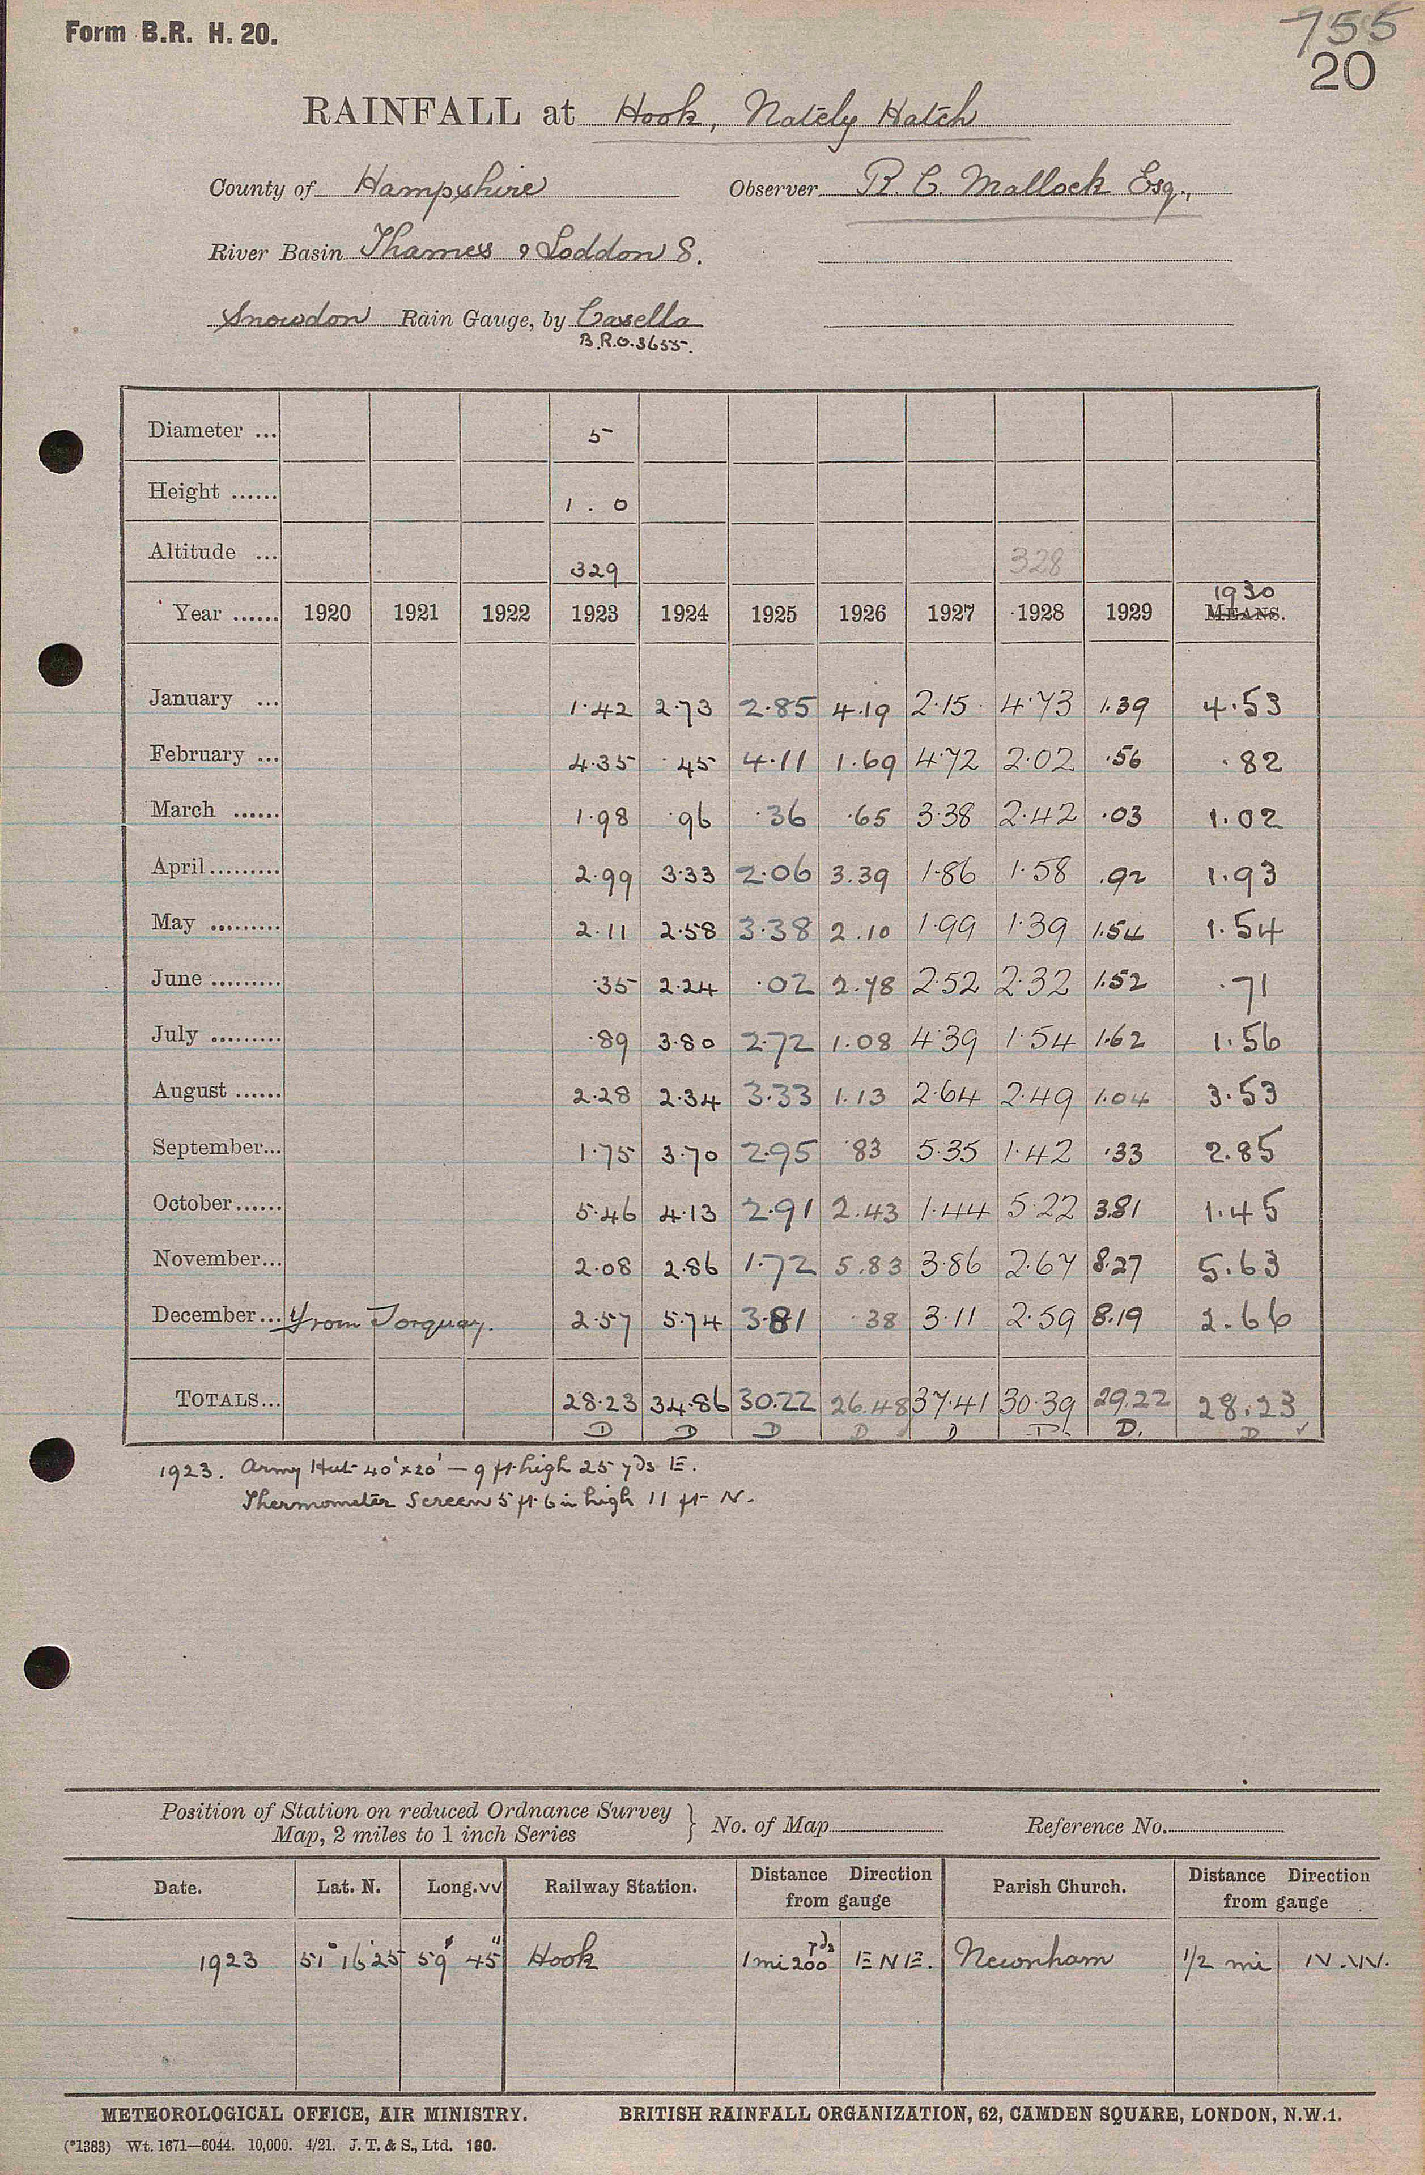 Form B.R. H. 20.
755
20
RAINFALL at Hook, Nately Hatch
County of Hampshire Observer R. C. Mallock Esq.,
River Basin Thames, Loddon S.
Snowdon Rain Gauge, by Casella
B.R.O. 3655.
Diameter ... 5
Height ...... 1.0
Altitude ... 329 328
1930
Year ...... 1920 1921 1922 1923 1924 1925 1926 1927 1928 1929 MEANS.
January ... 1.42 2.73 2.85 4.19 2.15 4.73 1.39 4.53
February ... 4.35 .45 4.11 1.69 4.72 2.02 .56 .82
March ...... 1.98 .96 .36 .65 3.38 2.42 .03 1.02
April ......... 2.99 3.33 2.06 3.39 1.86 1.58 .92 1.93
May ......... 2.11 2.58 3.38 2.10 1.99 1.39 1.54 1.54
June ......... .35 2.24 .02 2.78 2.52 2.32 1.52 .71
July ......... .89 3.80 2.72 1.08 4.39 1.54 1.62 1.56
August ...... 2.28 2.34 3.33 1.13 2.64 2.49 1.04 3.53
September... 1.75 3.70 2.95 .83 5.35 1.42 .33 2.85
October ...... 5.46 4.13 2.91 2.43 1.44 5.22 3.81 1.45
November... 2.08 2.86 1.72 5.83 3.86 2.67 8.27 5.63
December... From Torquay. 2.57 5.74 3.81 .38 3.11 2.59 8.19 2.66
TOTALS... 28.23 34.86 30.22 26.48 37.41 30.39 29.22 28.23
D D D D D D D. D ✓
1923. Army Hut 40'x20' — 9 ft high 25 yds E.
Thermometer Screen 5 ft 6 in high 11 ft N.
Position of Station on reduced Ordnance Survey
Map, 2 miles to 1 inch Series } No. of Map Reference No.
Date. Lat. N. Long. W Railway Station. Distance Direction from gauge Parish Church. Distance Direction from gauge
1923 51° 16' 25 59' 45" Hook 1 mi 200 yds E N E. Newnham 1/2 mi N.W.
METEOROLOGICAL OFFICE, AIR MINISTRY. BRITISH RAINFALL ORGANIZATION, 62, CAMDEN SQUARE, LONDON, N.W.1.
(*1383) Wt. 1671—6044. 10,000. 4/21. J. T. & S., Ltd. 160.